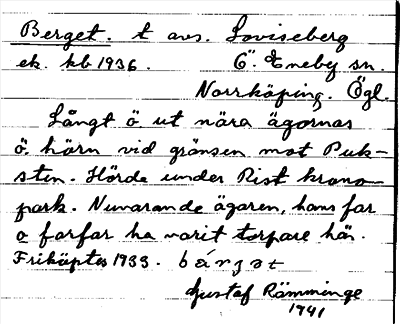 Berget. t avs. Loviseberg
ek. kb 1936. Ö. Eneby sn.
Norrköping. Ögl.
Långt ö. ut nära ägornas
ö. hörn vid gränsen mot Puk-
sten. Hörde under Rist krono-
park. Nuvarande ägaren, hans far
o farfar ha varit torpare här.
Friköptes 1933. bárgət
Gustaf Rämminge
1941